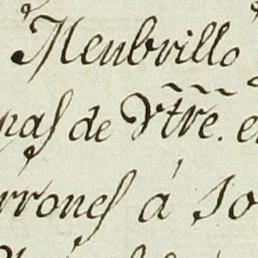 Menbrillo
pas de Vtre. e
rrones á So